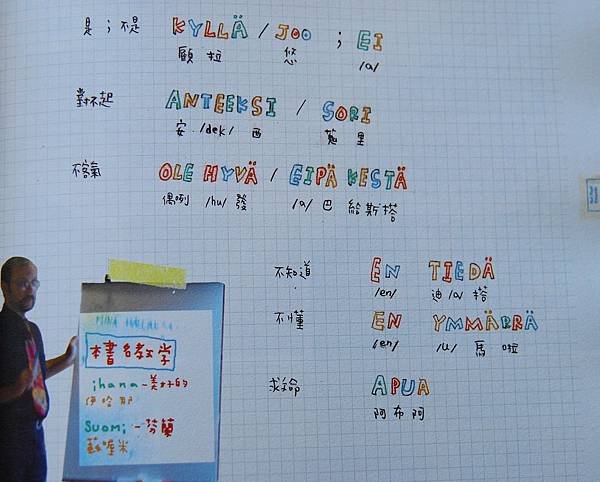 是；不是 KYLLÄ / JOO ; EI
顧拉 悠 /a/
對不起 ANTEEKSI / SORI
安 /dek/ 西 蒐里
不客氣 OLE HYVÄ / EIPÄ KESTÄ
偶咧 /hu/ 發 /a/ 巴 給斯搭
不知道 EN TIEDÄ
/en/ 迪/a/搭
不懂 EN YMMÄRRÄ
/en/ /u/ 馬啦
求救命 APUA
阿布阿
本書教学
ihana-美好的
伊哈那
Suomi-芬蘭
蘇喔米